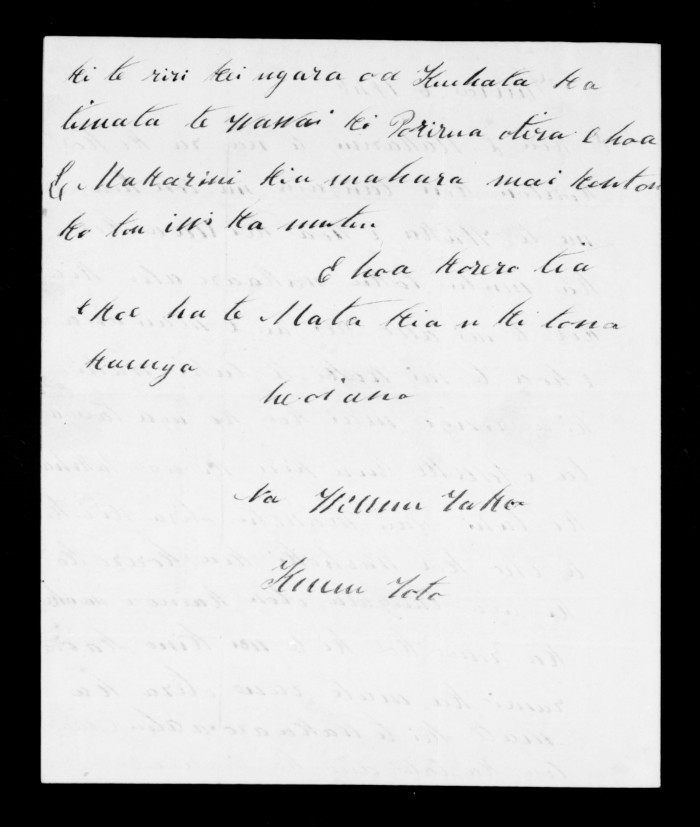 ki te riri kei ngara od Kuihata ka
timata te wawai ki Porirua otira E hoa
E Makarini kia mahara mai
ko tou iwi ka mutu
E hoa korero tia
e koe ha te Mata kia u ki tona
kaenga
heoi ano
Na Wiremu Tako
Kumu Toto